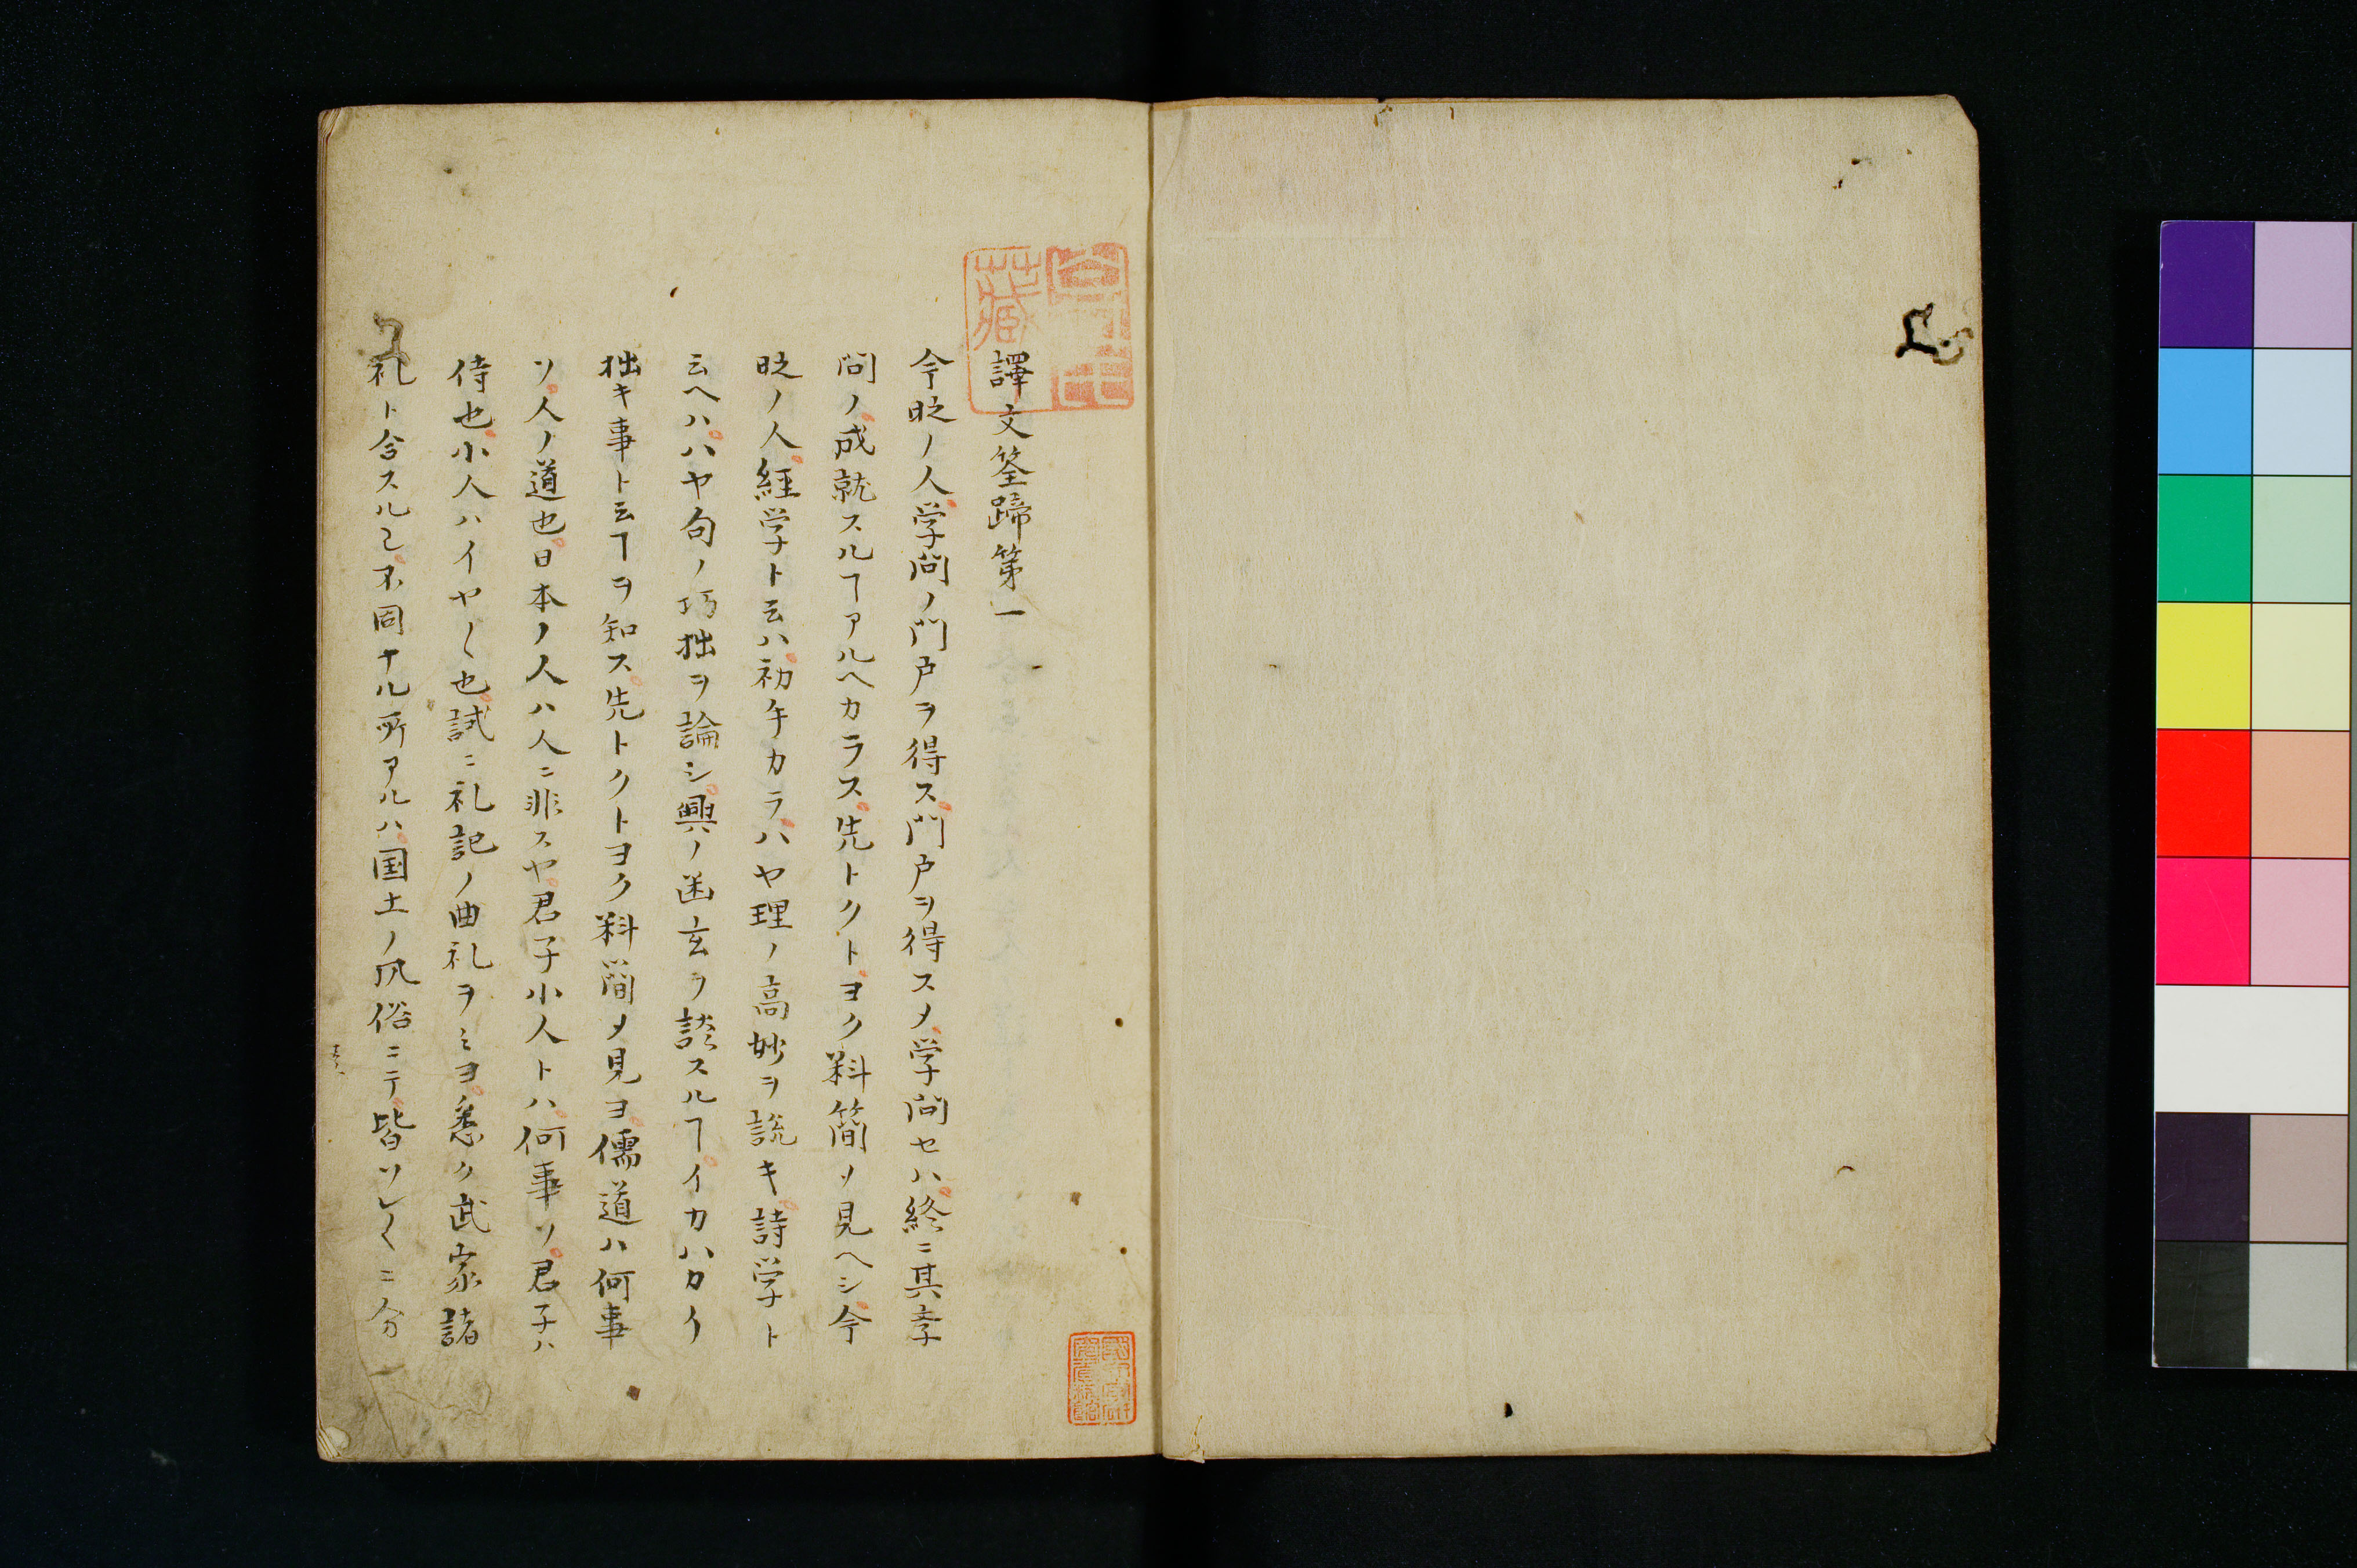 譯文筌蹄第一
今时ノ人学问ノ门戸ヲ得ス门戸ヲ得スメ学问セハ終ニ其李
问ノ成就スルヿアルヘカラス先トクトヨク料簡ソ見ヘシ今
时ノ人経学ト云ハ初午カラハヤ理ノ高妙ヲ説キ詩学ト
云ヘハハヤ句ノ巧拙ヲ論シ興ノ幽玄ヲ談スルヿイカハカイ
拙キ事ト云ヿヲ知ス先トクトヨク料簡メ見ヨ儒道ハ何事
ソ人ノ道也日本ノ人ハ人ニ非スヤ君子小人トハ何事ソ君子ハ
侍也小人ハイヤ〱也試ニ礼記ノ曲礼ヲミヨ悉ク武家諸
礼ト合スル也不同ナル所アルハ国土ノ風俗ニテ皆ソレ〱ニ分